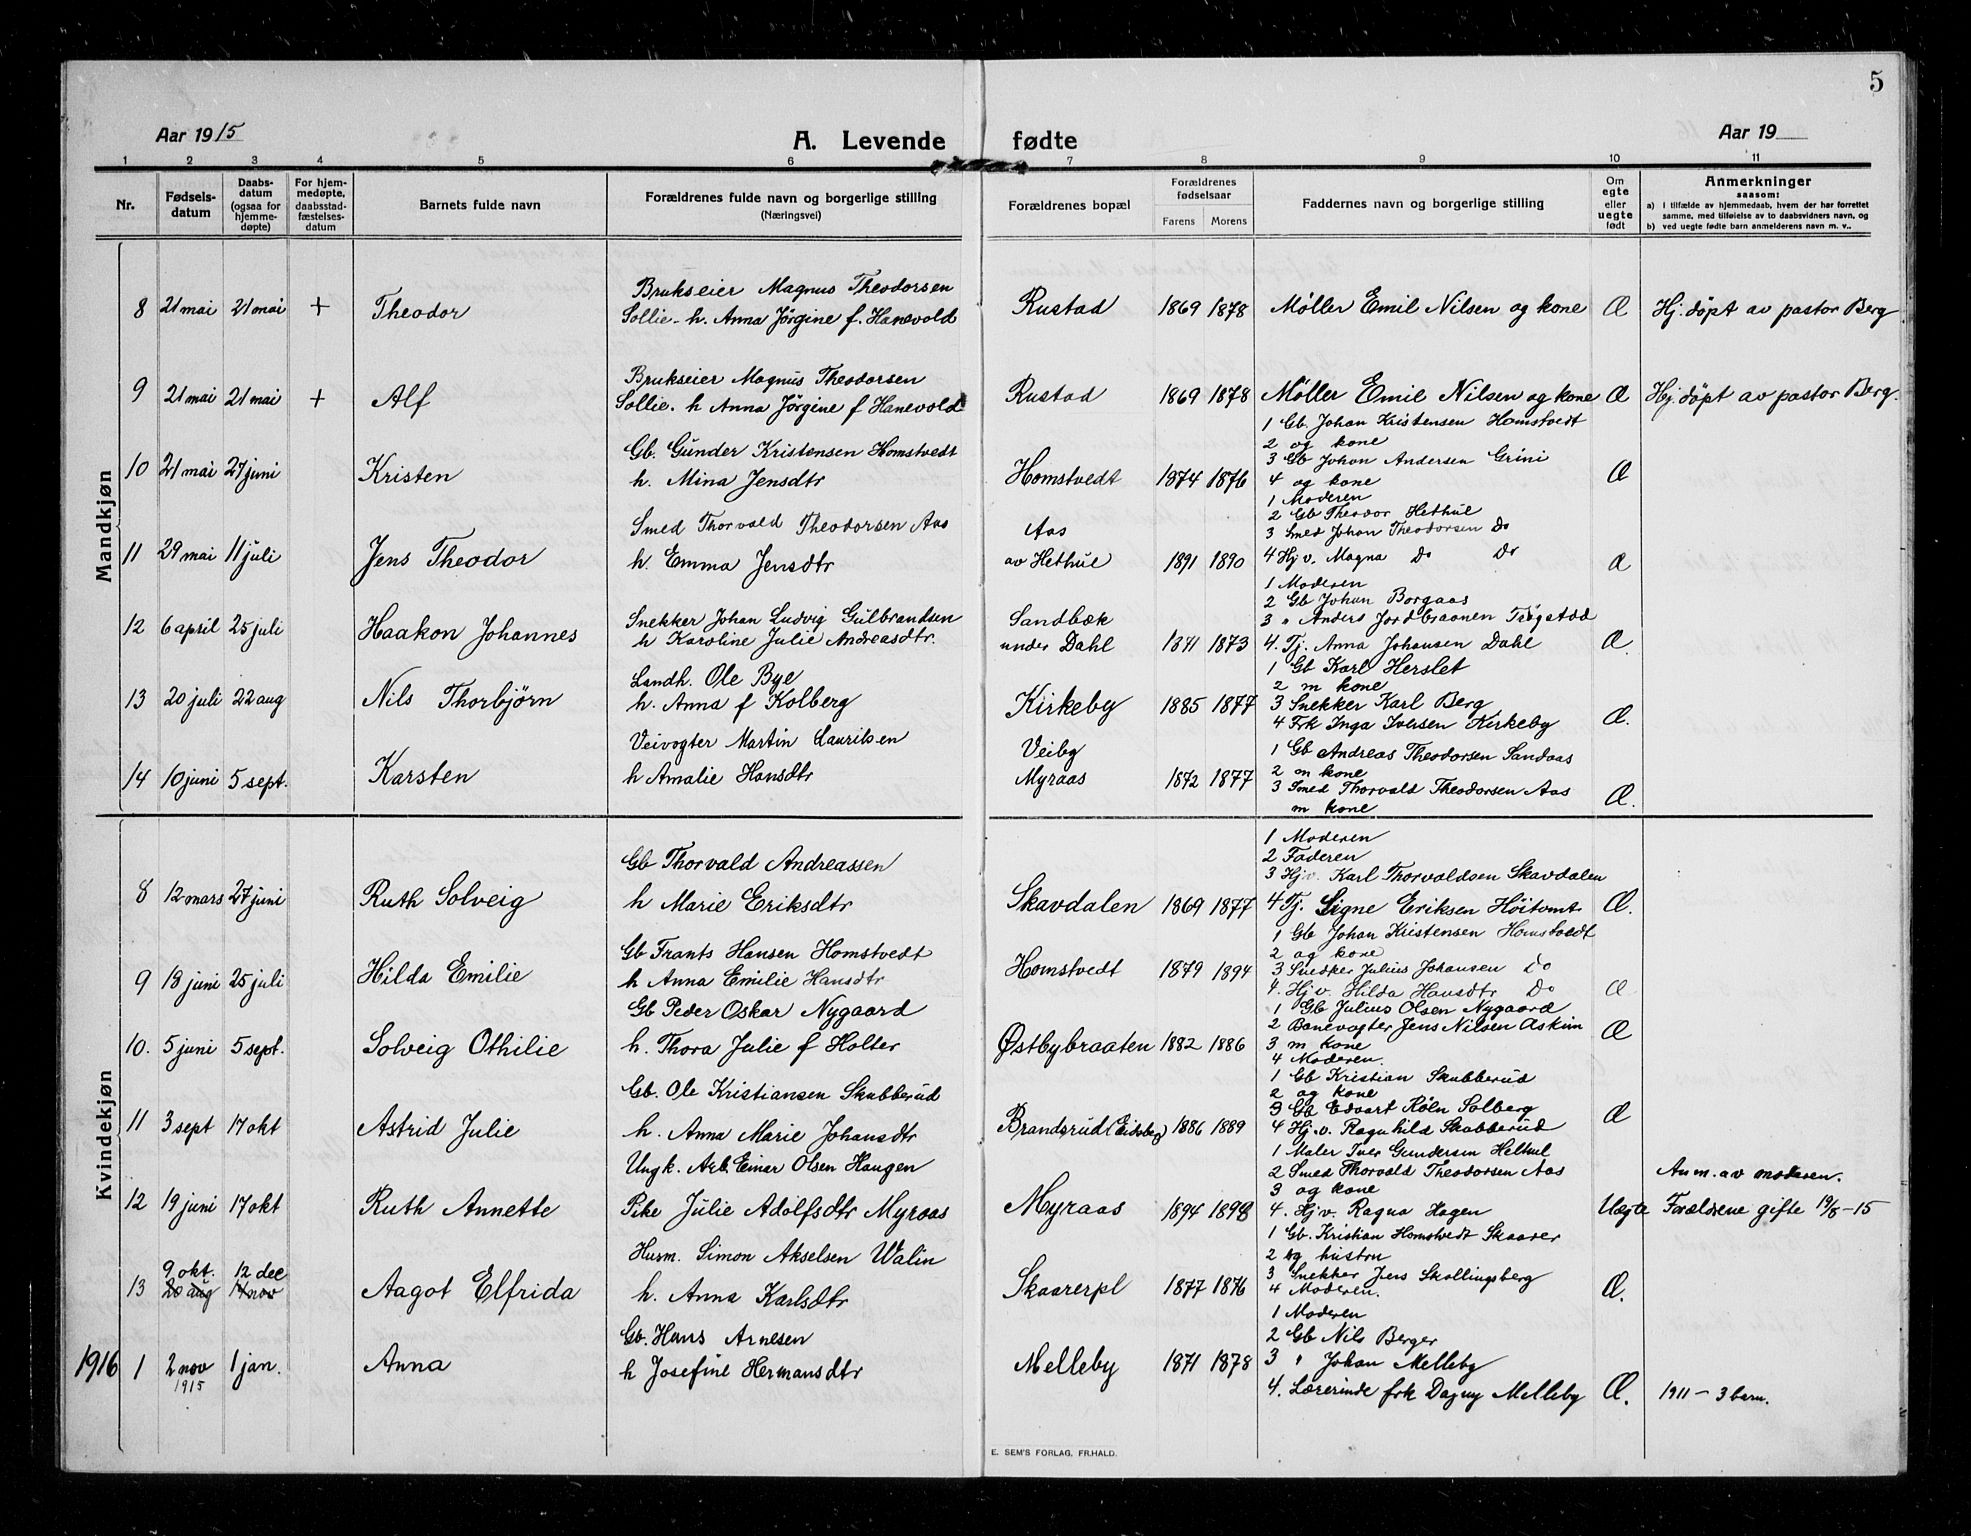 5
Aar 1915
A. Levende fødte
Aar 19
1 2 3 4 5 6 7 8 9 10 11
Nr.
Fødsels-
datum
Daabs-
datum
(ogsaa for
hjemme-
døpte)
For hjem-
medøpte,
daabsstad-
fæstelses-
datum
Barnets fulde navn
Forældrenes fulde navn og borgerlige stilling
(Næringsvei)
Forældrenes bopæl
Forældrenes
fødselsaar
Farens Morens
Faddernes navn og borgerlige stilling
Om
egte
eller
uegte
født
Anmerkninger
saasom:
a) I tilfælde av hjemmedaab, hvem der har forrettet
samme, med tilføielse av to daabsvidners navn, og
b) ved uegte fødte barn anmelderens navn m. v..
Mandkjøn
8 21 mai 21 mai + Theodor
Brukseier Magnus Theodorsen
Sollie - h. Anna Jørgine f. Hanevold
Rustad 1869 1878
Møller Emil Nilsen og kone
Æ
Hj. døpt av pastor Berg
9 21 mai 21 mai + Alf
Brukseier Magnus Theodorsen
Sollie. h Anna Jørgine f Hanevold
Rustad 1869 1878
Møller Emil Nilsen og kone
Æ
Hj. døpt av pastor Berg.
10 21 mai 27 juni Kristen
Gb. Gunder Kristensen Homstvedt
h. Mina Jensdtr
Homstvedt 1874 1876
1 Gb. Johan Kristensen Homstvedt
2 og kone
3 Gb Johan Andersen Grini
4 og kone
Æ
11 29 mai 11 juli Jens Theodor
Smed Thorvald Theodorsen Aas
h. Emma Jensdtr
Aas
av Hethue 1891 1890
1 Moderen
2 Gb Theodor Hethul
3 Smed Johan Theodorsen Do
4 Hj v. Magna Do Do
Æ
12 6 april 25 juli Haakon Johannes
Snekker Johan Ludvig Gulbrandsen
h Karoline Julie Andreasdtr.
Sandbæk
under Dahl 1871 1873
1 Moderen
2 Gb Johan Borgaas
3 " Anders Jordbraanen Trøgstad
4. Tj. Anna Johansen Dahl
Æ.
13 20 juli 22 aug Nils Thorbjørn
Landh. Ole Bye
h. Anna f Kolberg
Kirkeby 1885 1877
1 Gb Karl Herslet
2 m kone
3 Snekker Karl Berg
4 Frk Inga Iversen Kirkeby
Æ.
14 10 juni 5 sept. Karsten
Veivogter Martin Lauritsen
h Amalie Hansdtr
Veiby
Myraas 1872 1877
1 Gb Andreas Theodorsen Sandaas
2 m kone
3 Smed Thorvald Theodorsen Aas
m kone
Æ.
Kvindekjøn
8 12 mars 27 juni Ruth Solveig
Gb Thorvald Andreassen
h Marie Eriksdtr
Skavdalen 1869 1877
1 Moderen
2 Faderen
3 Hj.v. Karl Thorvaldsen Skavdalen
4 Tj. Signe Eriksen Høitomt
Æ.
9 18 juni 25 juli Hilda Emilie
Gb Frants Hansen Homstvedt
h Anna Emilie Hansdtr
Homstvedt 1879 1894
1 Gb Johan Kristensen Homstvedt
2 og kone
3 Snekker Julius Johansen Do
4. Hj v. Hilda Hansdtr Do
Æ
10. 5 juni 5 sept. Solveig Othilie
Gb Peder Oskar Nygaard
h. Thora Julie f Holter
Østbybraaten 1882 1886
1 Gb Julius Olsen Nygaard
2 Banevogter Jens Nilsen Askim
3 m kone
4 Moderen.
Æ
11 3 sept 17 okt Astrid Julie
Gb. Ole Kristiansen Skubberud
h. Anna Marie Johansdtr
Brandsrud (Eidsberg) 1886 1889
1 Gb Kristian Skubberud
2 og kone
3 Gb Edvart Køln Solberg
4 Hj. v. Ragnhild Skubberud
Æ
12 19 juni 17 okt Ruth Annette
Ungk. Arb. Einar Olsen Haugen
Pike Julie Adolfsdtr Myraas
Myraas 1894 1898
1 Maler Iver Gundersen Hethul
2 Smed Thorvald Theodorsen Aas
3 og kone
4. Hj v. Ragna Hagen
Uegte
Anm. av moderen.
Forældrene gifte 19/8-15
13 9 okt. 12 dec
20 aug 14 nov
Aagot Elfrida
Husm. Simon Akselsen Walin
h. Anna Karlsdtr
Skaarerpl 1877 1876
1 Gb. Kristian Homstvedt Skaarer
2 og hustru
3 Snekker Jens Skallingsberg
4 Moderen.
Æ.
1916 1 2 nov 1 jan. Anna
1915
Gb. Hans Arnesen
h Josefine Hermansdtr
Melleby 1871 1878
1 Moderen
2 Gb Nils Berger
3 " Johan Melleby
4. Lærerinde frk Dagny Melleby
Æ.
1911 - 3 barn.
E. SEM'S FORLAG, FR.HALD.